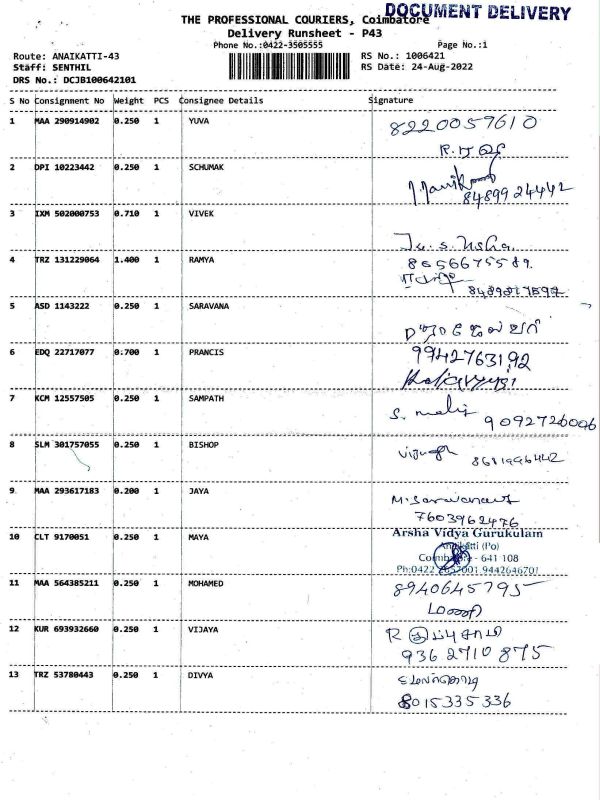 DOCUMENT DELIVERY
THE PROFESSIONAL COURIERS, Coimbatore
Delivery Runsheet - P43
Phone No.:0422-3505555
Page No.:1
Route: ANAIKATTI-43
RS No.: 1006421
Staff: SENTHIL
RS Date: 24-Aug-2022
DRS No.: DCJB100642101
S No Consignment No Weight PCS Consignee Details Signature
1 MAA 290914902 0.250 1 YUVA 8220059610
2 DPI 10223442 0.250 1 SCHUMAK
8489924442
3 IXM 502000753 0.710 1 VIVEK
4 TRZ 131229064 1.400 1 RAMYA
5 ASD 1143222 0.250 1 SARAVANA
6 EDQ 22717077 0.700 1 PRANCIS 9942763192
7 KCM 12557505 0.250 1 SAMPATH
9092726006
8 SLM 301757055 0.250 1 BISHOP
9 MAA 293617183 0.200 1 JAYA
7603962476
10 CLT 9170051 0.250 1 MAYA
Arsha Vidya Gurukulam
Coimbatore - 641 108
11 MAA 564385211 0.250 1 MOHAMED 8940645795
மணி
12 KUR 693932660 0.250 1 VIJAYA
936 2710 875
13 TRZ 53780443 0.250 1 DIVYA
8015335336